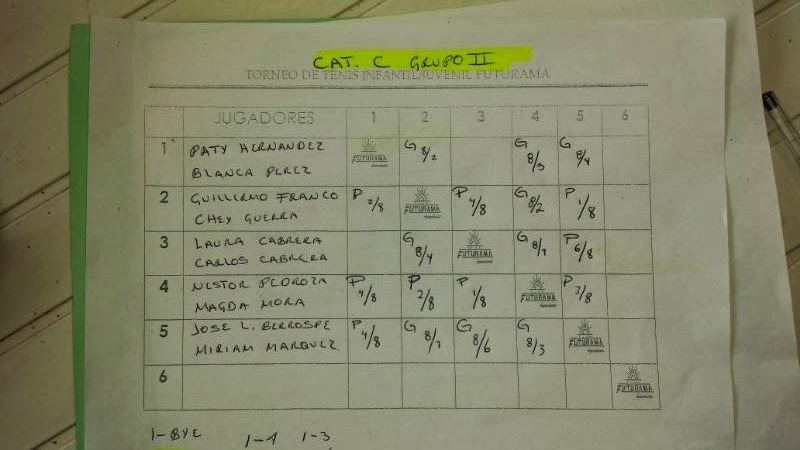 CAT. C GRUPO II
TORNEO DE TENIS INFANTIL/JUVENIL FUTURAMA
JUGADORES 1 2 3 4 5 6
1 PATY HERNANDEZ FUTURAMA G 8/2 G 8/3 G 8/4
BLANCA PEREZ
2 GUILLERMO FRANCO P 2/8 FUTURAMA P 4/8 G 8/2 P 1/8
CHEY GUERRA
3 LAURA CABRERA G 8/4 FUTURAMA G 8/1 P 6/8
CARLOS CABRERA
4 NESTOR PEDROZA P 4/8 P 2/8 P 1/8 FUTURAMA P 3/8
MAGDA MORA
5 JOSE L. BERROSPE P 4/8 G 8/1 G 8/6 G 8/3 FUTURAMA
MIRIAM MARQUEZ
6 FUTURAMA
1-BYE 1-4 1-3